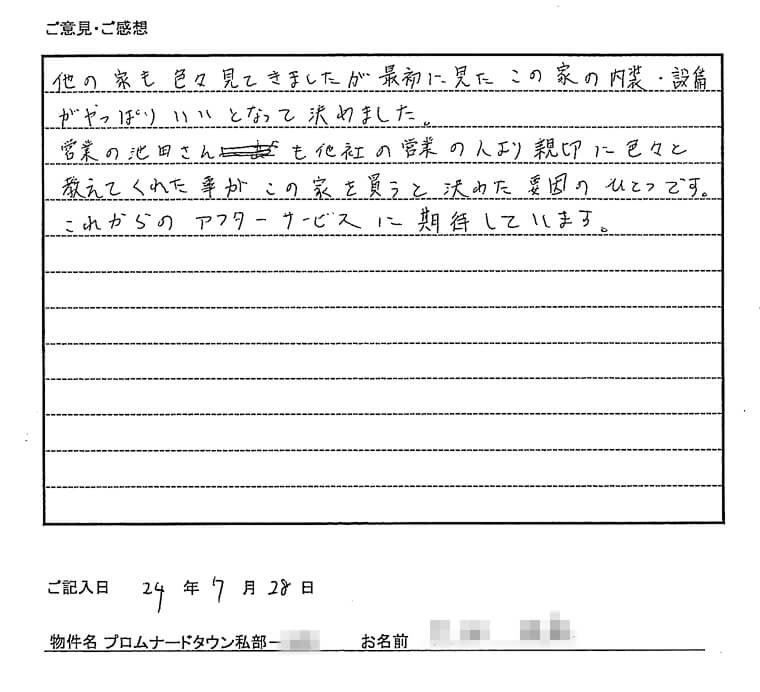 ご意見・ご感想
他の家も色々見てきましたが最初に見たこの家の内装・設備
がやっぱりいいとなって決めました。
営業の池田さんも他社の営業の人より親切に色々と
教えてくれた事がこの家を買うと決めた要因のひとつです。
これからのアフターサービスに期待しています。
ご記入日 24年7月28日
物件名 プロムナードタウン私部一 お名前